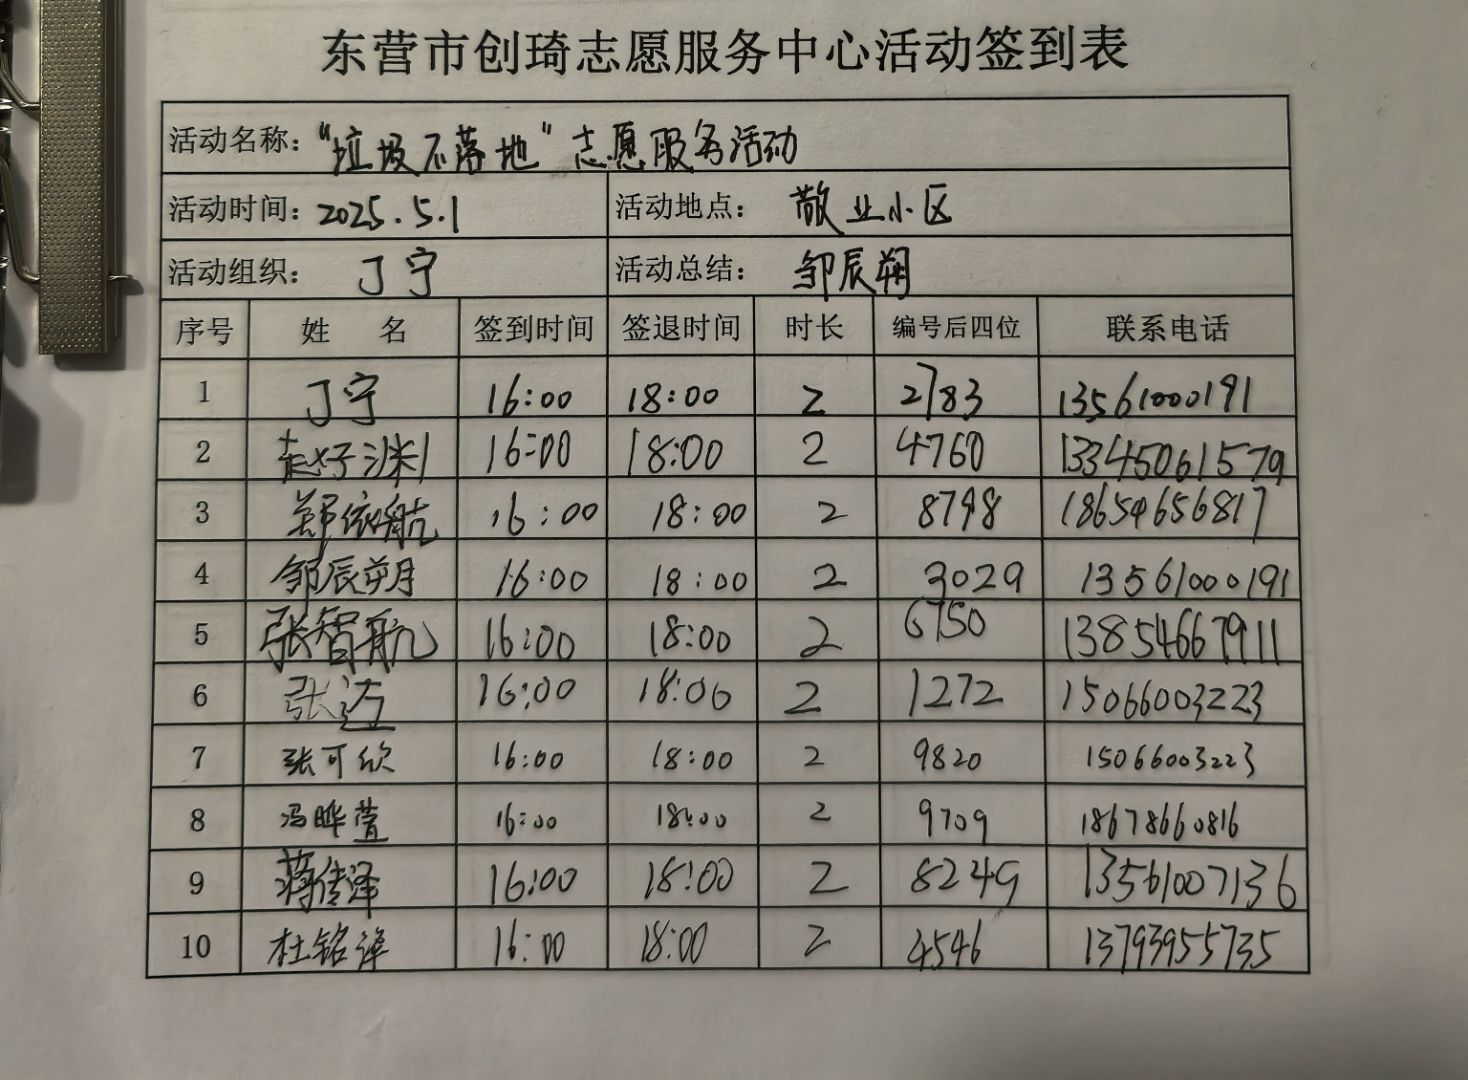 东营市创琦志愿服务中心活动签到表
活动名称：“垃圾不落地”志愿服务活动
活动时间：2025.5.1 活动地点：敬业小区
活动组织：丁宁 活动总结：邹辰朔
序号 姓 名 签到时间 签退时间 时长 编号后四位 联系电话
1 丁宁 16:00 18:00 2 2783 13561000191
2 16:00 18:00 2 4760 13345061579
3 郑依航 16:00 18:00 2 8798 18654656817
4 邹辰朔 16:00 18:00 2 3029 13561000191
5 张智航 16:00 18:00 2 6750 13854667911
6 张迈 16:00 18:00 2 1272 15066003223
7 张可欣 16:00 18:00 2 9820 15066003223
8 冯晔萱 16:00 18:00 2 9709 18678660816
9 蒋传泽 16:00 18:00 2 8249 13561007136
10 杜铭泽 16:00 18:00 2 4546 13793955735